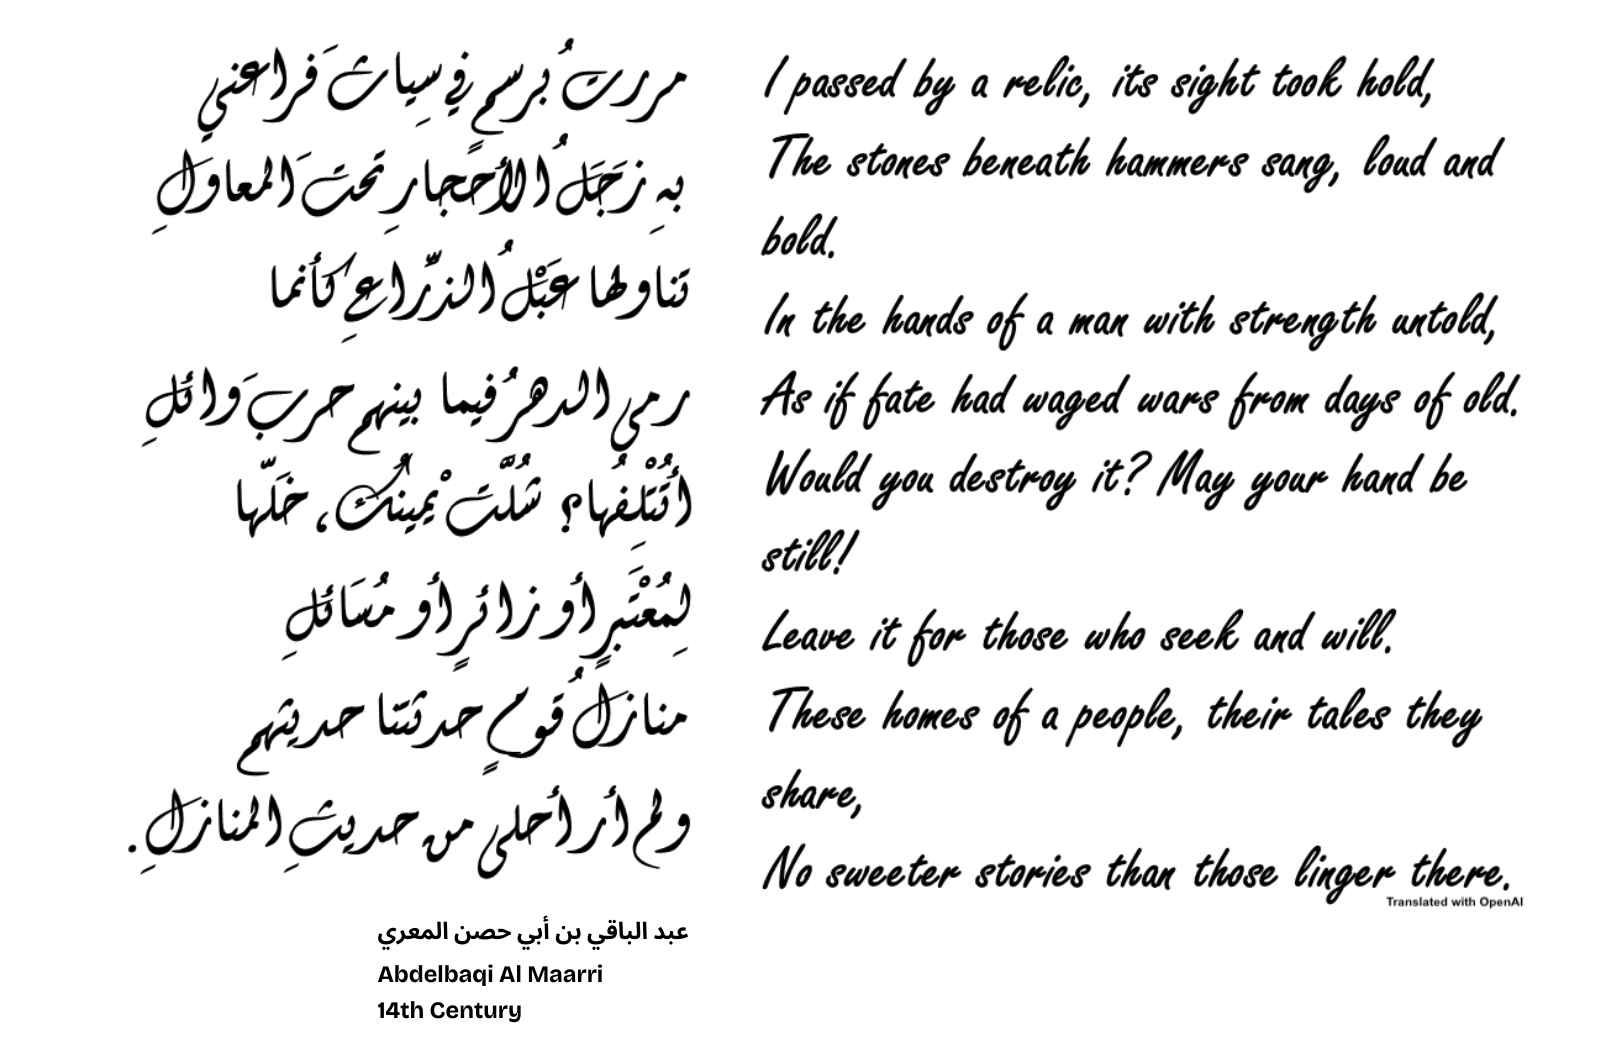 مررتُ برسمٍ في سِياثَ فراعني
بهِ زَجَلُ الأحجارِ تحتَ المعاولِ
تناولها عَبْلُ الذّراعِ كأنما
رمى الدهرُ فيما بينهم حربَ وائلِ
أتُتْلِفُها؟ شُلَّتْ يمينُك، خَلّها
لِمُعْتَبرٍ أو زائرٍ أو مُسَائلِ
منازلُ قومٍ حدثتنا حديثهم
ولم أر أحلى من حديثِ المنازلِ.
عبد الباقي بن أبي حصن المعري
Abdelbaqi Al Maarri
14th Century
I passed by a relic, its sight took hold,
The stones beneath hammers sang, loud and
bold.
In the hands of a man with strength untold,
As if fate had waged wars from days of old.
Would you destroy it? May your hand be
still!
Leave it for those who seek and will.
These homes of a people, their tales they
share,
No sweeter stories than those linger there.
Translated with OpenAI